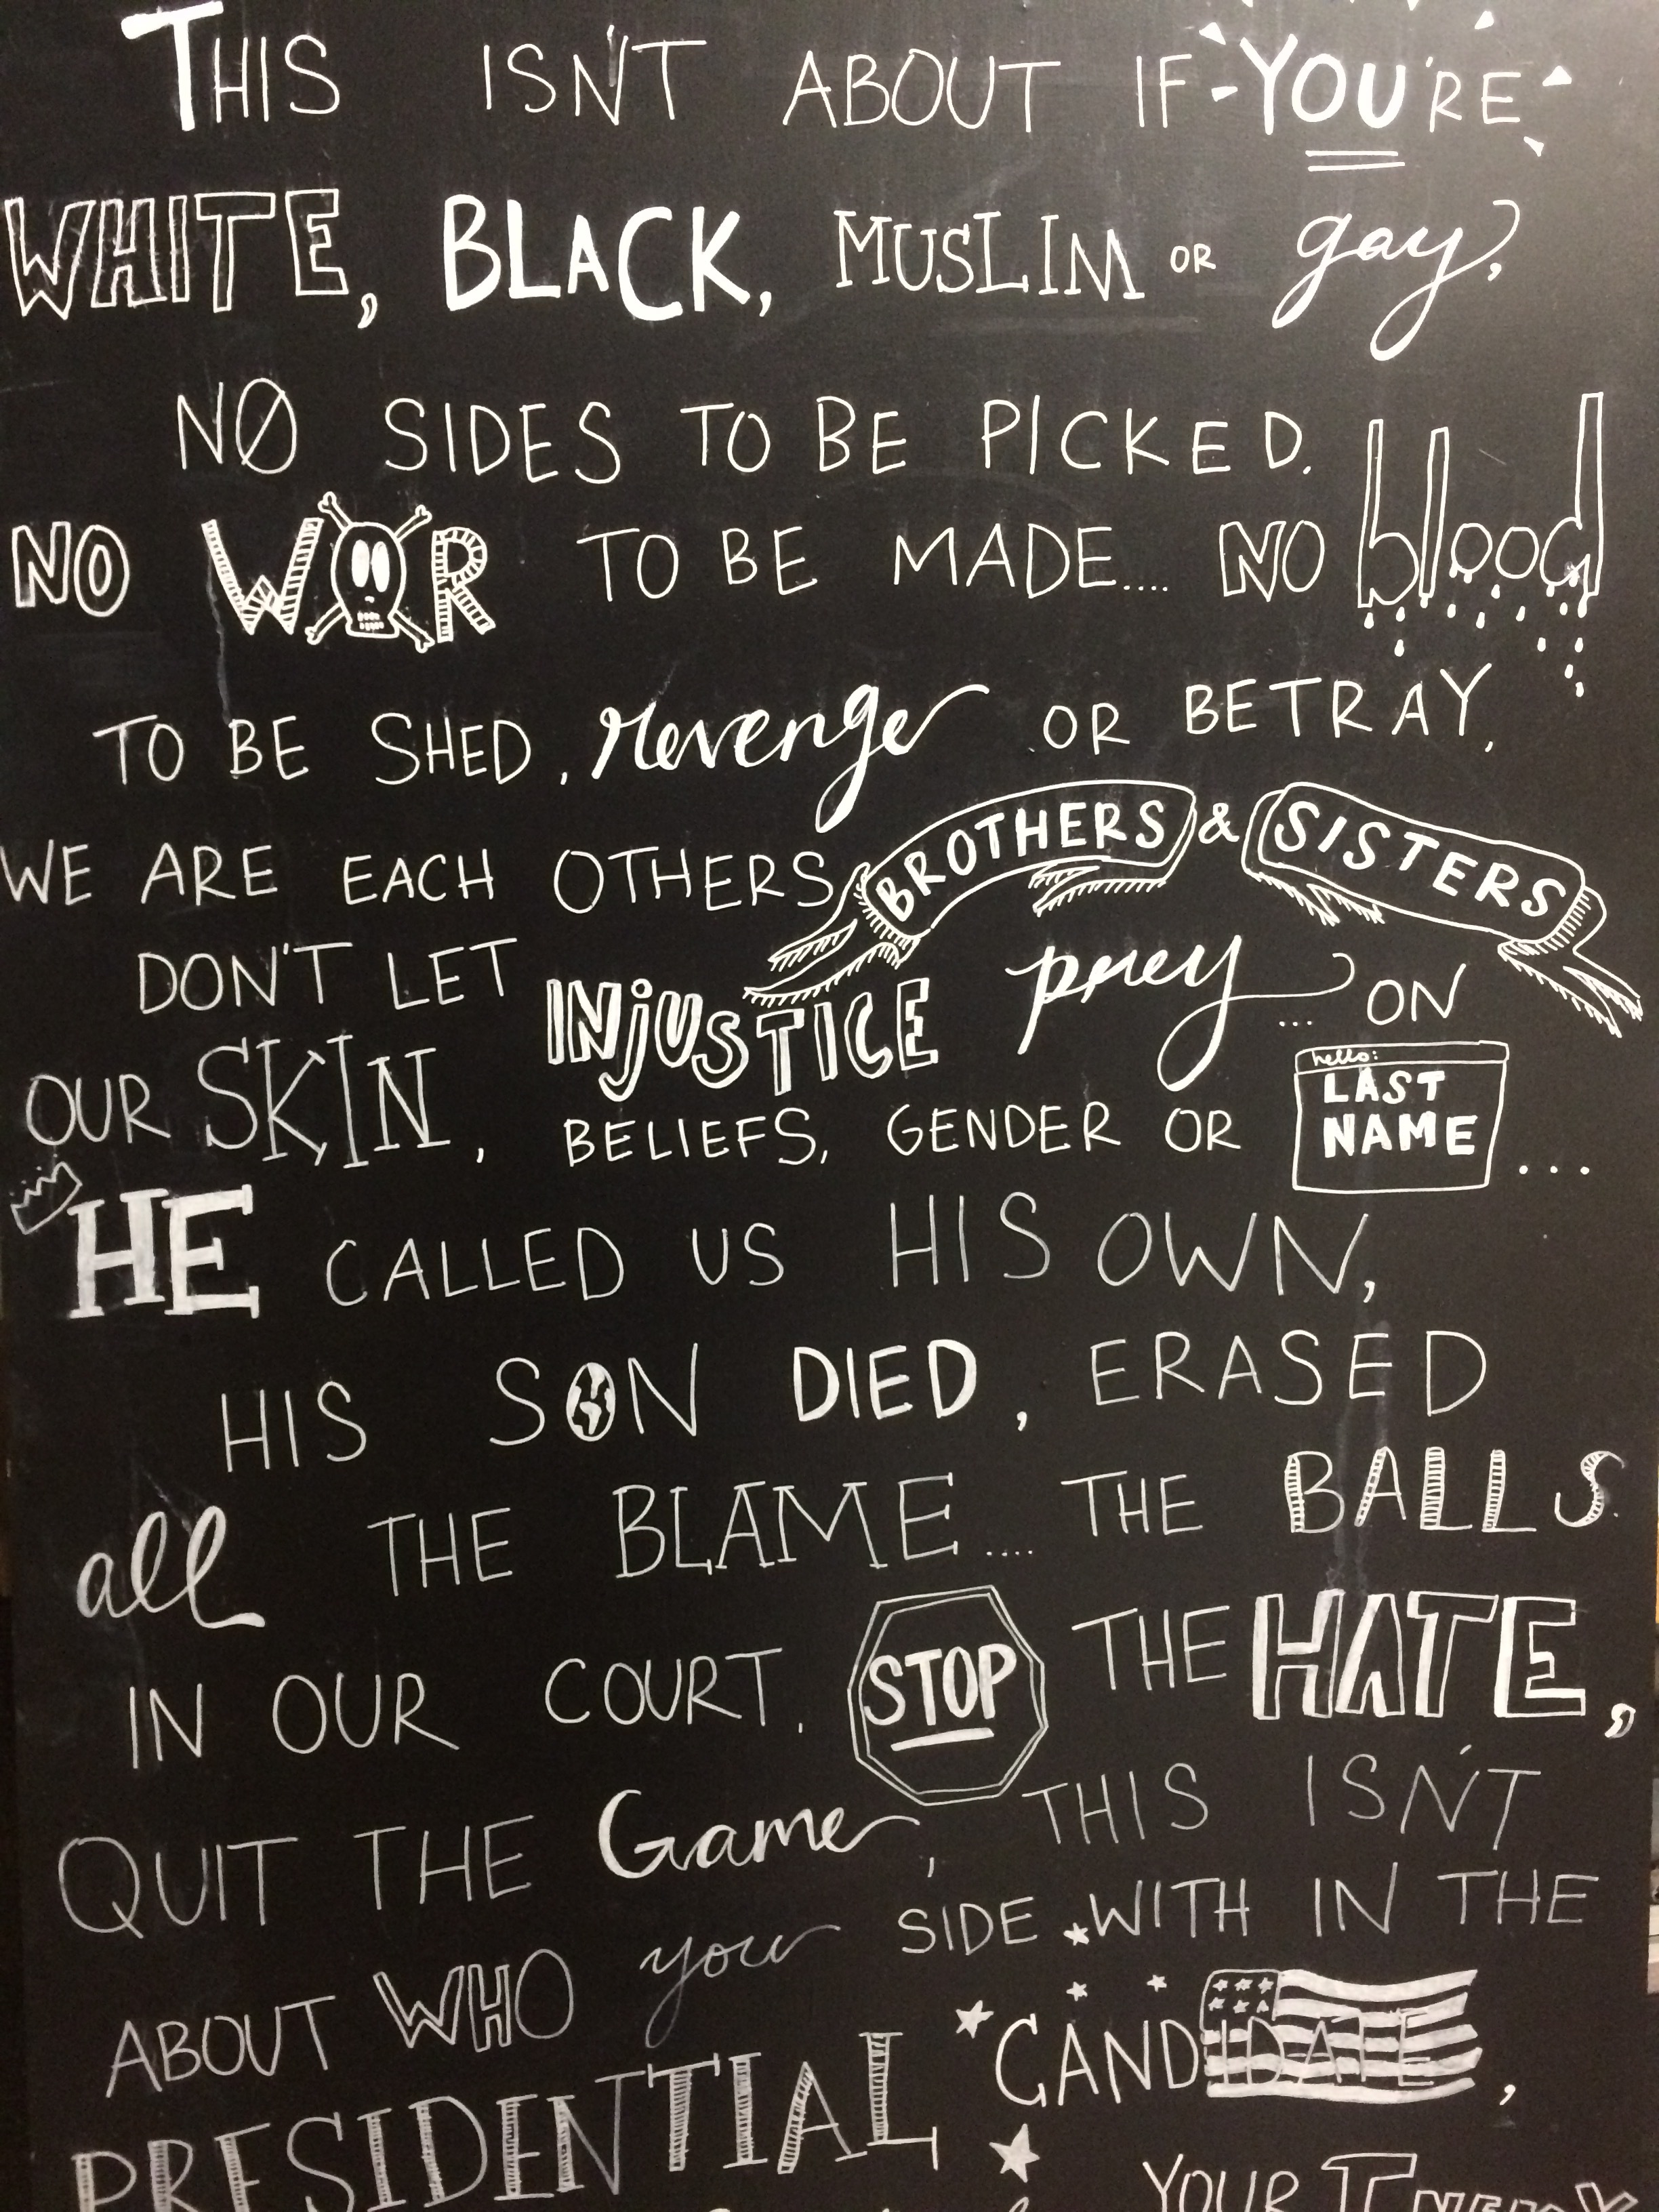 THIS ISN'T ABOUT IF YOU'RE
WHITE, BLACK, MUSLIM OR gay,
NO SIDES TO BE PICKED.
NO WAR TO BE MADE.... NO blood
TO BE SHED, revenge OR BETRAY,
WE ARE EACH OTHERS BROTHERS & SISTERS
DON'T LET INJUSTICE prey ... ON
OUR SKIN, BELIEFS, GENDER OR hello: LAST NAME ...
HE CALLED US HIS OWN,
HIS SON DIED, ERASED
all THE BLAME.... THE BALLS
IN OUR COURT, STOP THE HATE,
QUIT THE Game, THIS ISN'T
ABOUT WHO you SIDE WITH IN THE
PRESIDENTIAL CANDIDATE,
YOUR